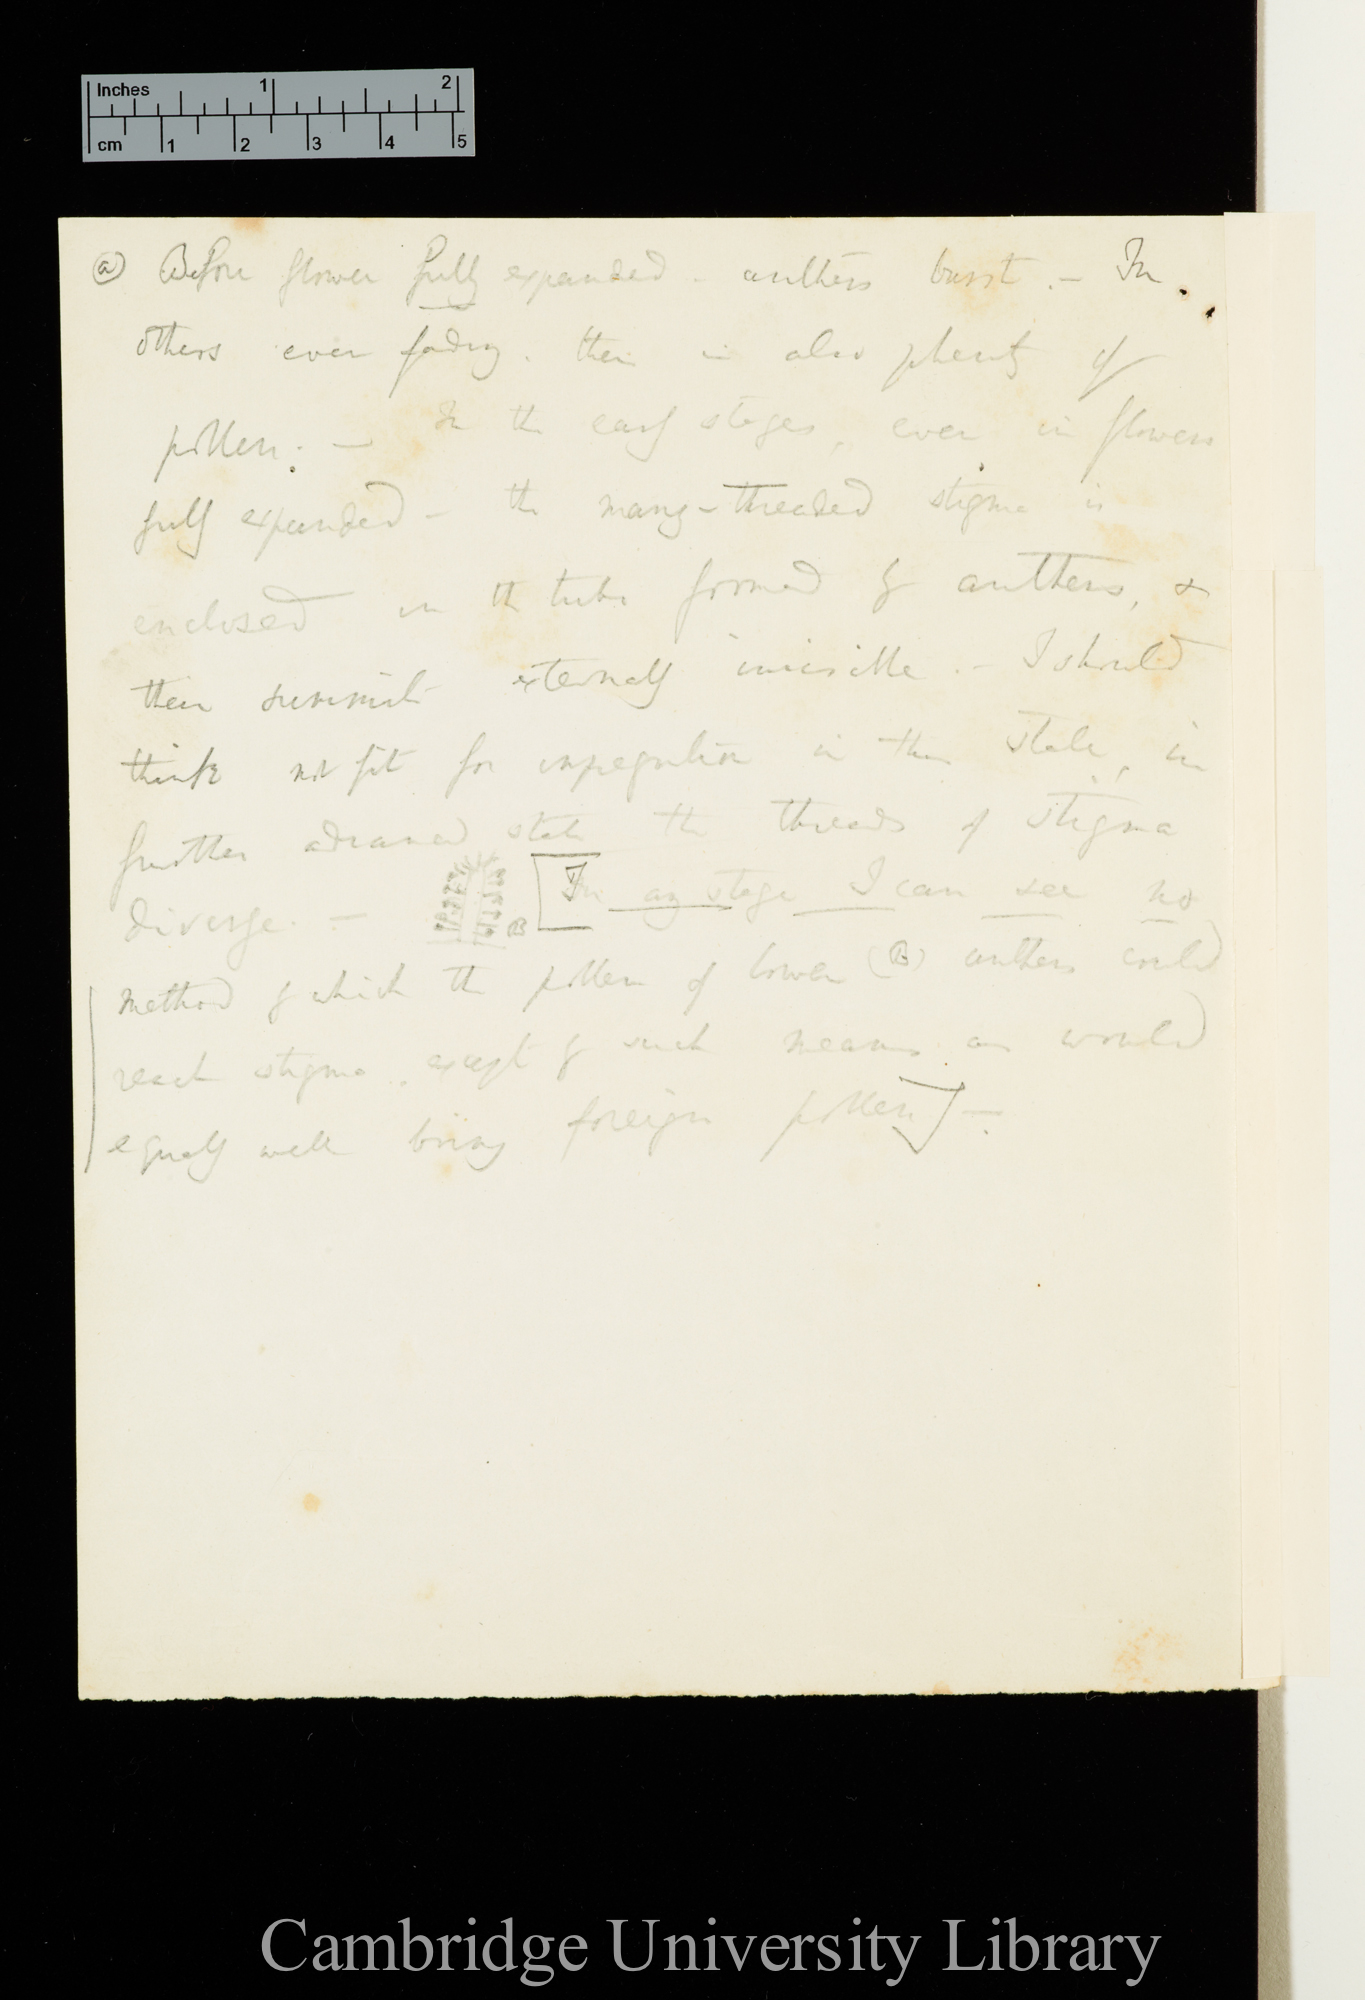 Inches 1 2
cm 1 2 3 4 5
(a) Before flower fully expanded - anthers burst. - In
others even fading. there is also plenty of
pollen. - In the early stages, even in flowers
fully expanded - the many-threaded stigma is
enclosed in the tube formed by anthers, &
their summit externally invisible. - I should
think not fit for impregnation in this state, in
further advanced state the threads of stigma
diverge. - B [In any stage I can see no
method by which the pollen of lower (B) anthers could
reach stigma, except by such means as would
equally well bring foreign pollen] -
Cambridge University Library